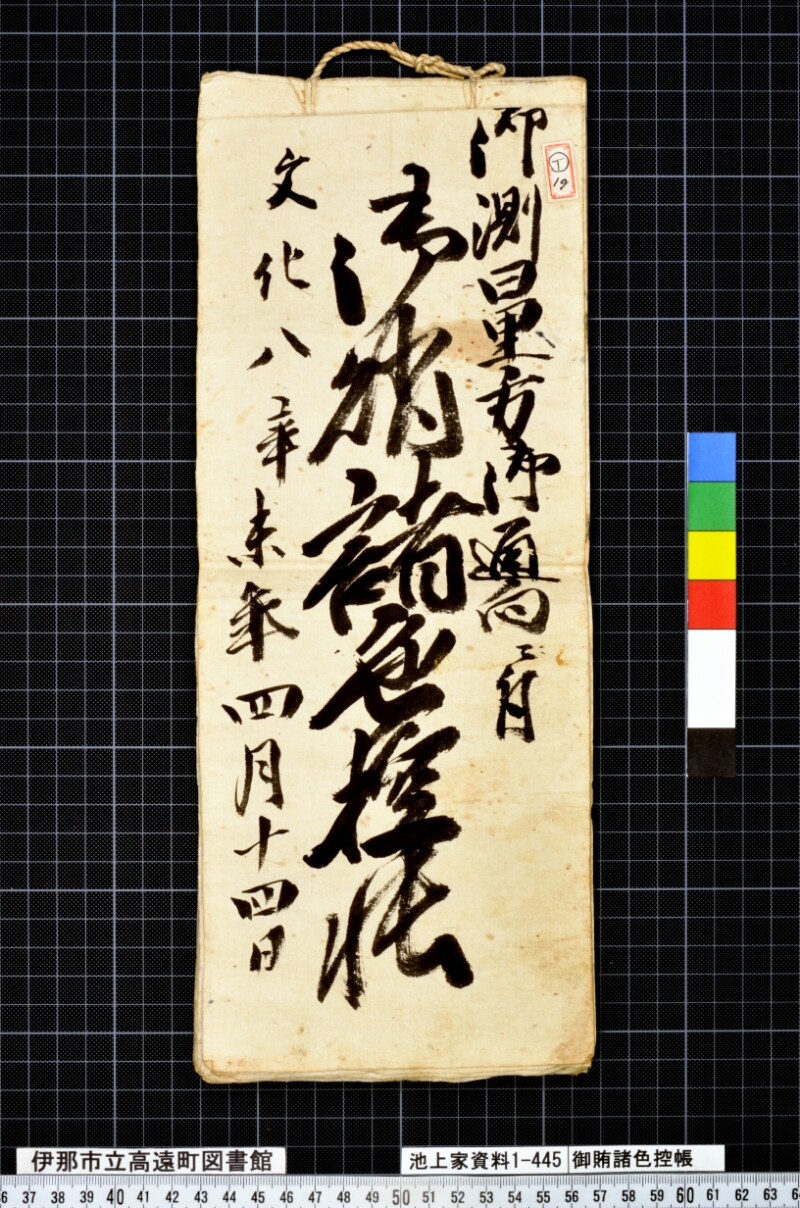 御測量方御通向ニ付
御賄諸色控帳
文化八辛未年四月十四日
丁
19
伊那市立高遠町図書館
池上家資料1-445
御賄諸色控帳
37 38 39 40 41 42 43 44 45 46 47 48 49 50 51 52 53 54 55 56 57 58 59 60 61 62 63